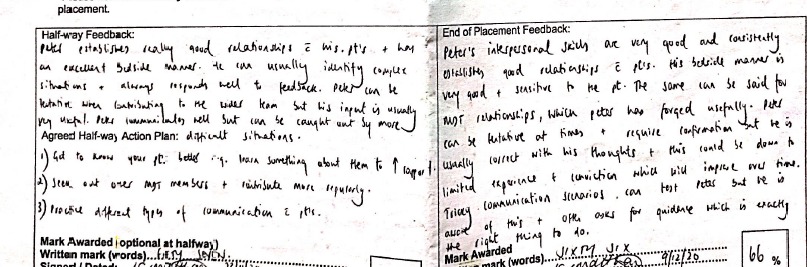 placement.
Half-way Feedback:
Peter establishes really good relationships c̄ his pt's + has
an excellent bedside manner. He can usually identify complex
situations + always responds well to feedback. Peter can be
tentative when contributing to the wider team but his input is usually
very useful. Peter communicates well but can be caught out by more
Agreed Half-way Action Plan: difficult situations.
1) Get to know your pt. better e.g. learn something about them to ↑ rapport.
2) Seek out other MDT members + contribute more regularly.
3) Practice different types of communication c̄ pt's.
Mark Awarded (optional at halfway)
Written mark (words)
Signed / Dated:
End of Placement Feedback:
Peter's interpersonal skills are very good and consistently
establishes good relationships c̄ pt's. His bedside manner is
very good + sensitive to the pt. The same can be said for
MDT relationships, which Peter has forged usefully. Peter
can be tentative at times + require confirmation but he is
usually correct with his thoughts + this could be down to
limited experience + conviction which will improve over time.
Tricky communication scenarios can test Peter but he is
aware of this + often asks for guidance which is exactly
the right thing to do.
Mark Awarded
mark (words) SIXTY SIX
9/12/20
66 %